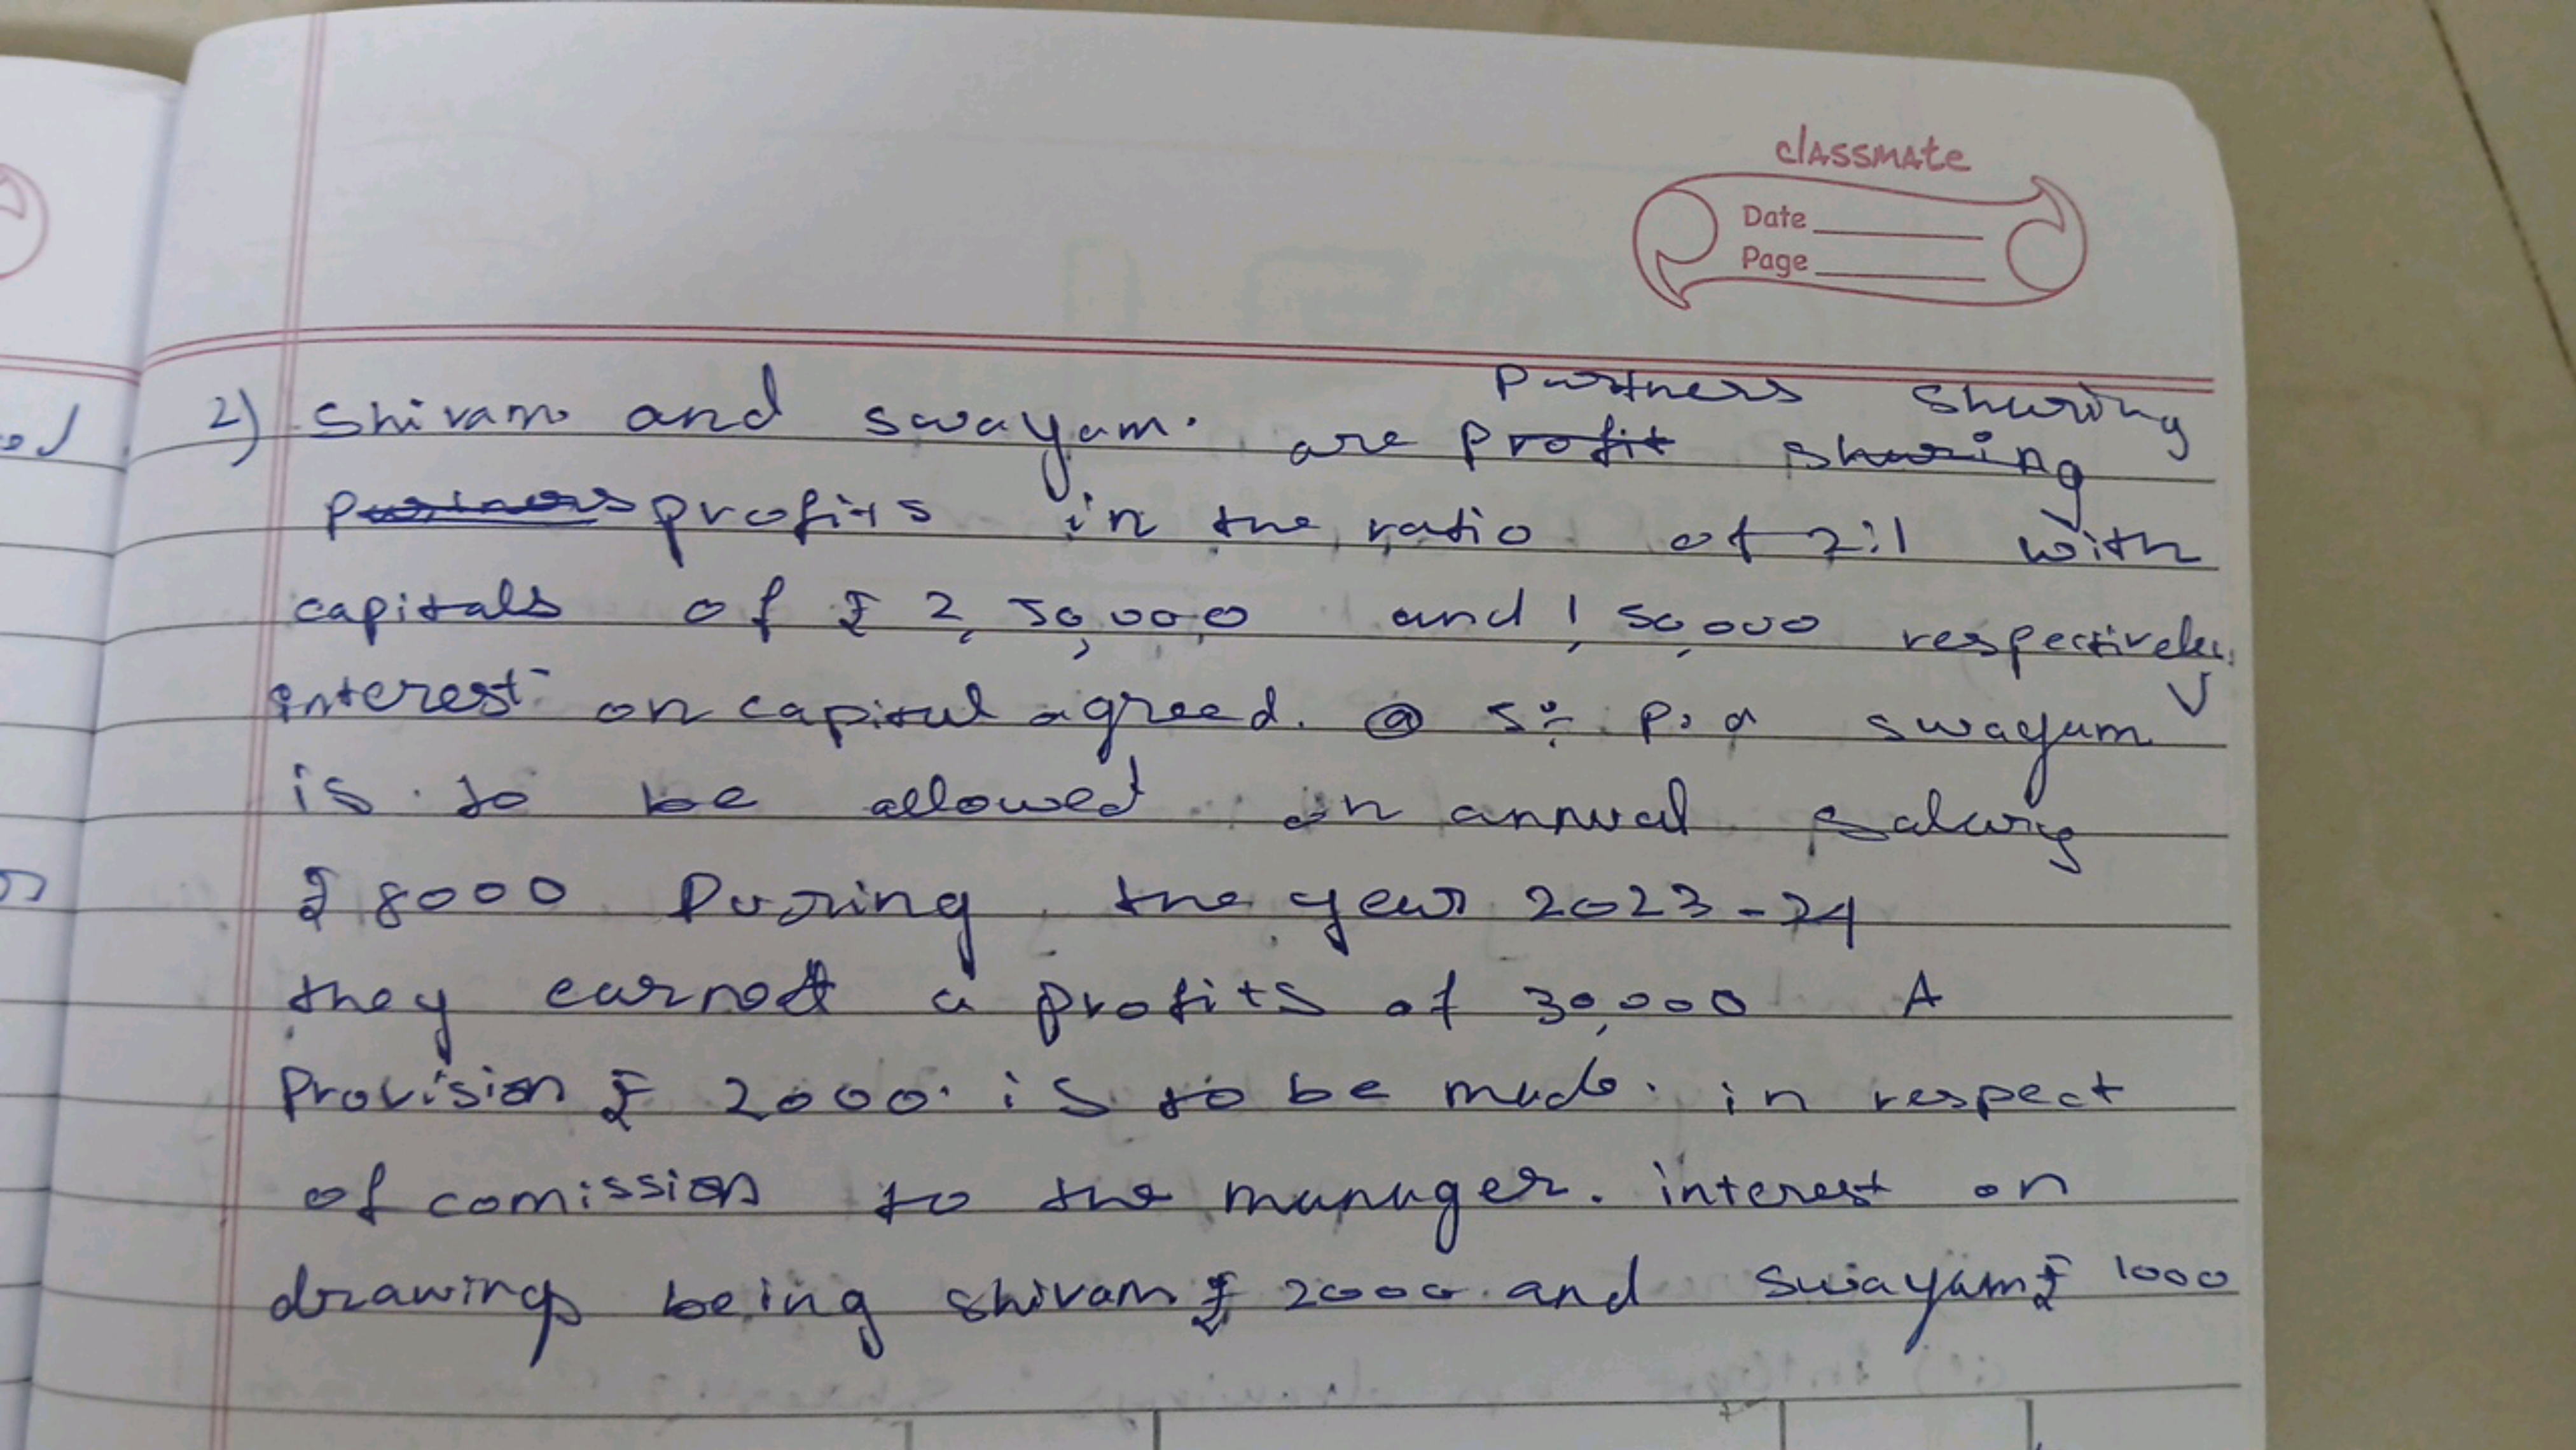 classmate
Date
Page
Partners Sharing
2) Shivam and swayam. are profit sharing
partners profits in the ratio of 2:1 with
capitals of ₹ 2,50,000 and 1,50,000 respectively.
interest on capital agreed. @ 5% p.a swayam
is to be allowed an annual salary
₹ 8000 During the year 2023-24
they earned a profits of 30,000 A
Provision ₹ 2000. is to be made. in respect
of comission to the manager. interest on
drawings being shivam ₹ 2000 and Swayam ₹ 1000